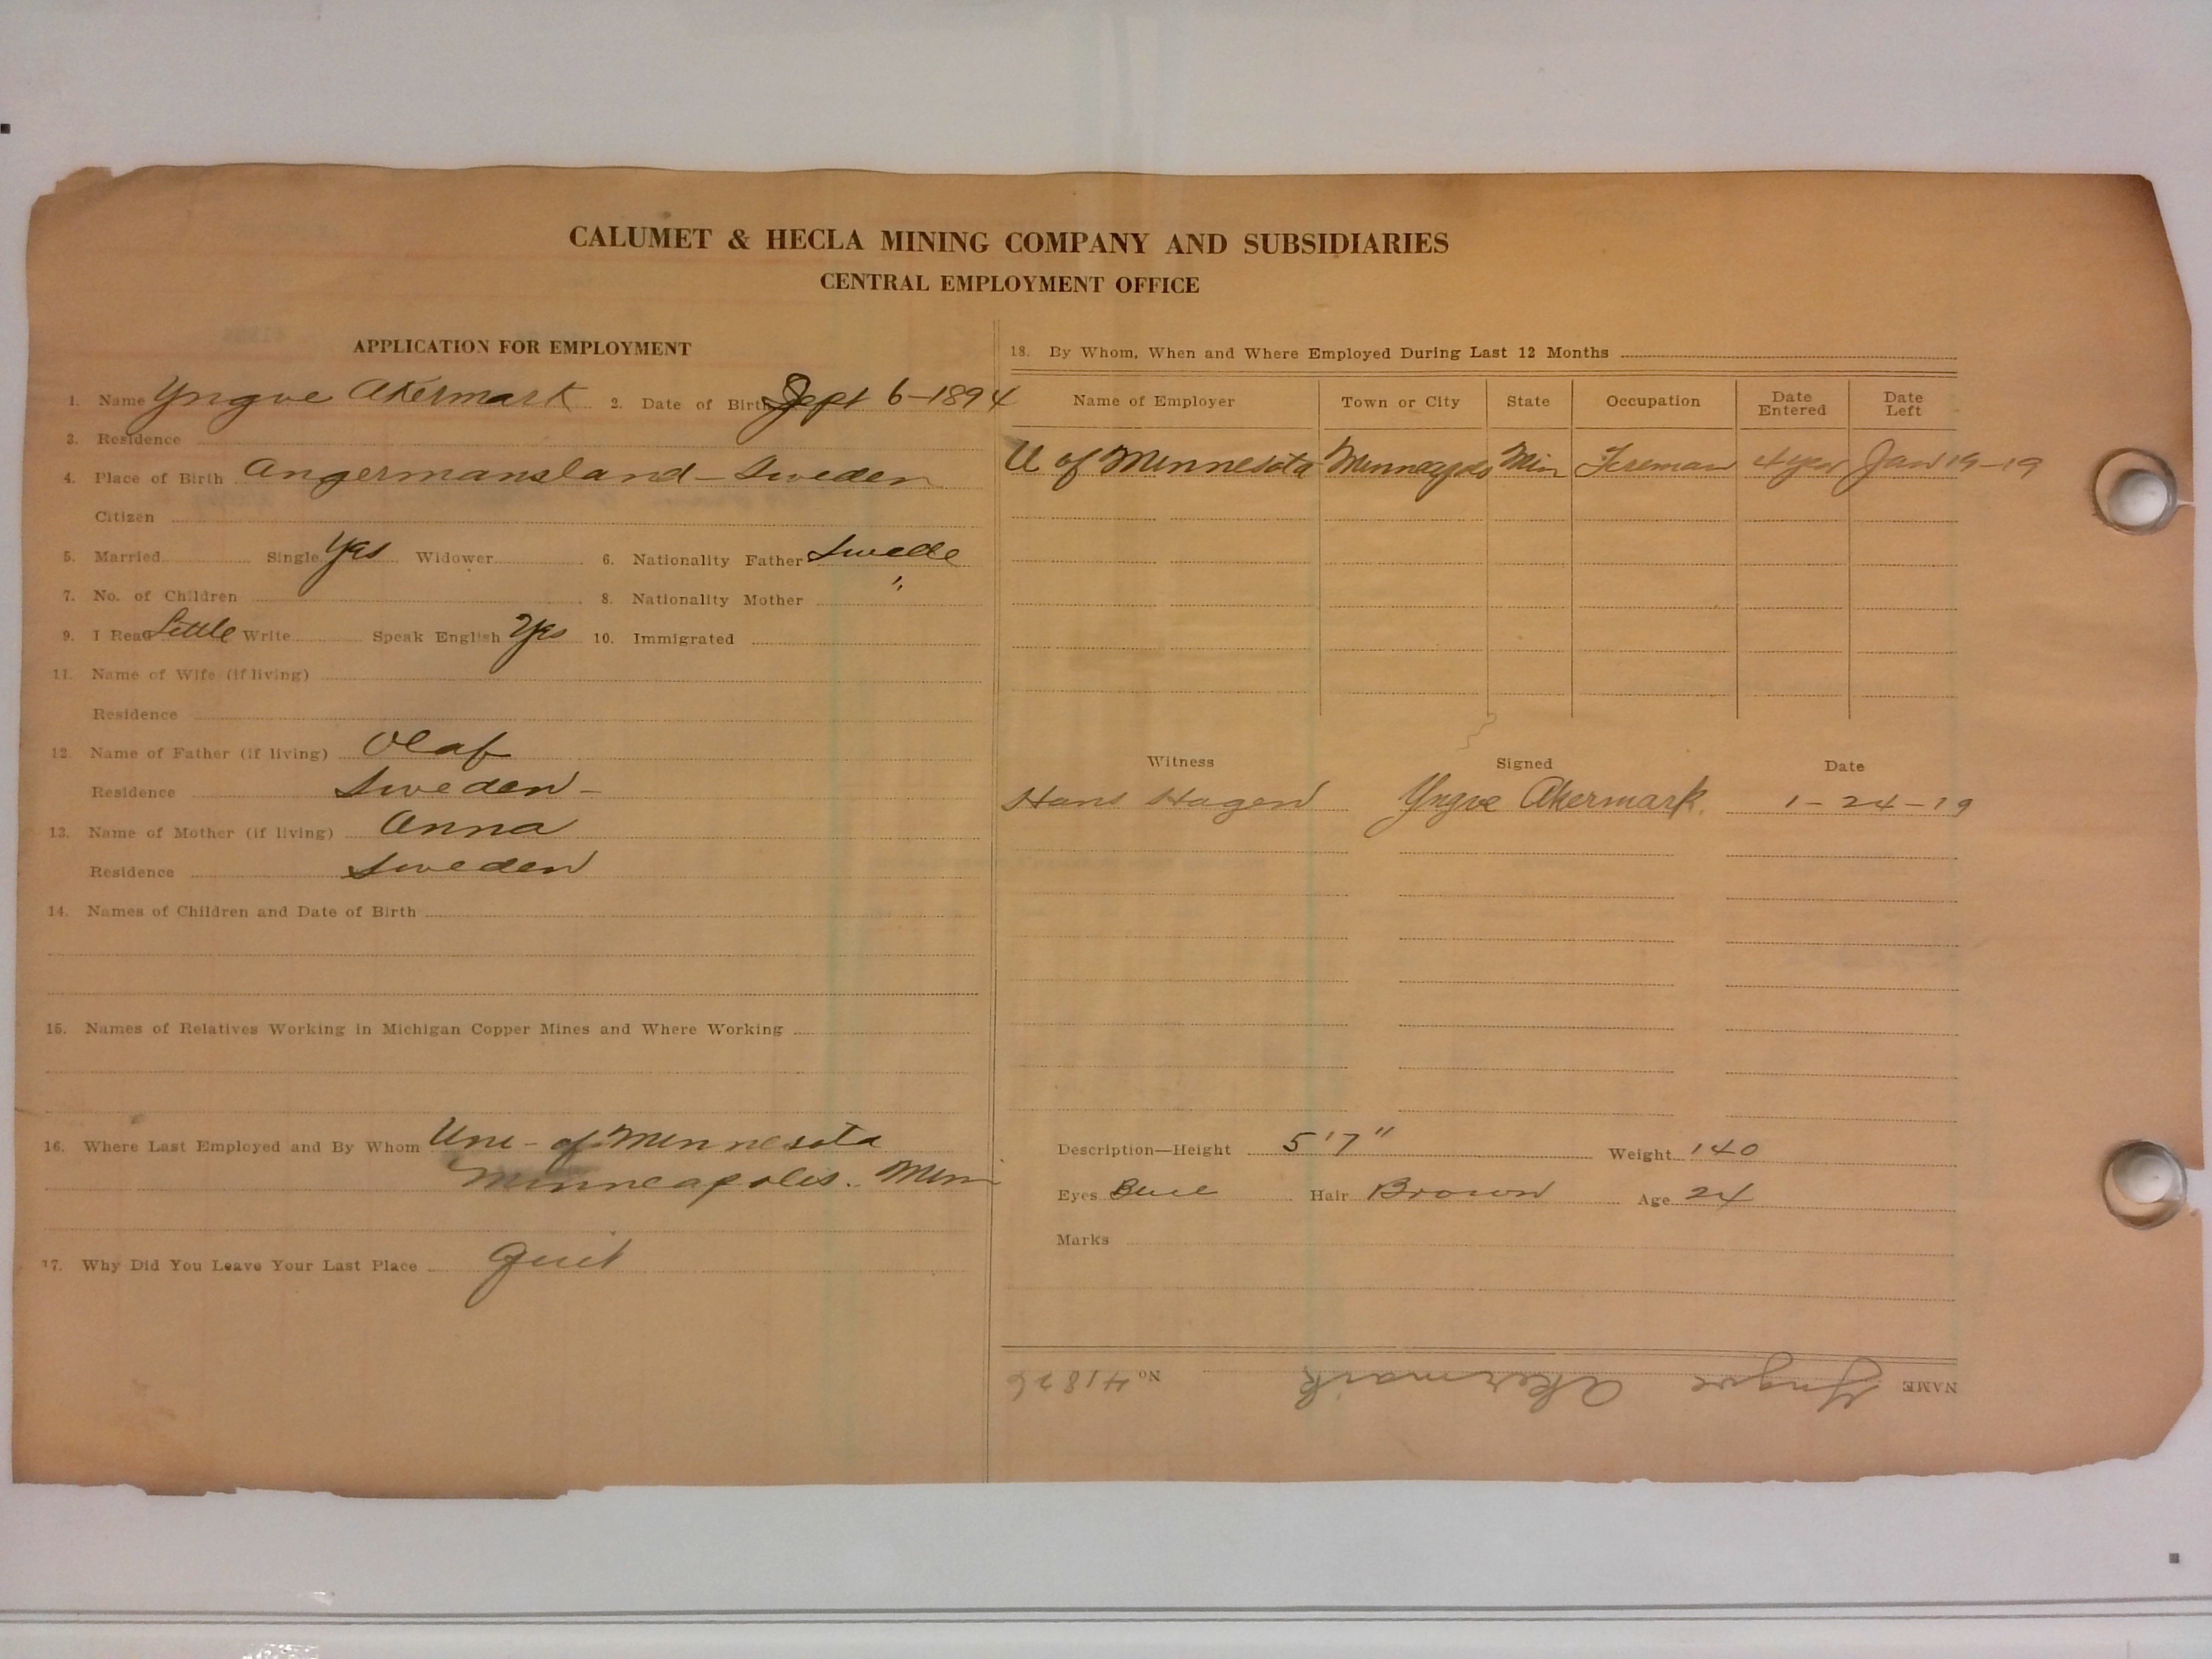 CALUMET & HECLA MINING COMPANY AND SUBSIDIARIES
CENTRAL EMPLOYMENT OFFICE
APPLICATION FOR EMPLOYMENT
1. Name Yngve Akermark 2. Date of Birth Sept 6-1894
3. Residence
4. Place of Birth Angermansland - Sweden
Citizen
5. Married Single Yes Widower 6. Nationality Father Swede
7. No. of Children 8. Nationality Mother "
9. I Read Little Write Speak English Yes 10. Immigrated
11. Name of Wife (if living)
Residence
12. Name of Father (if living) Olaf
Residence Sweden -
13. Name of Mother (if living) Anna
Residence Sweden
14. Names of Children and Date of Birth
15. Names of Relatives Working in Michigan Copper Mines and Where Working
16. Where Last Employed and By Whom Uni - of Minnesota
Minneapolis. Minn
17. Why Did You Leave Your Last Place Quit
18. By Whom, When and Where Employed During Last 12 Months
Name of Employer Town or City State Occupation Date Entered Date Left
U of Minnesota Minneapolis Min Fireman 4 year Jan 19-19
Witness Signed Date
Hans Hagen Yngve Akermark. 1-24-19
Description—Height 5'7" Weight 140
Eyes Blue Hair Brown Age 24
Marks
NAME Yngve Akermark No 41826